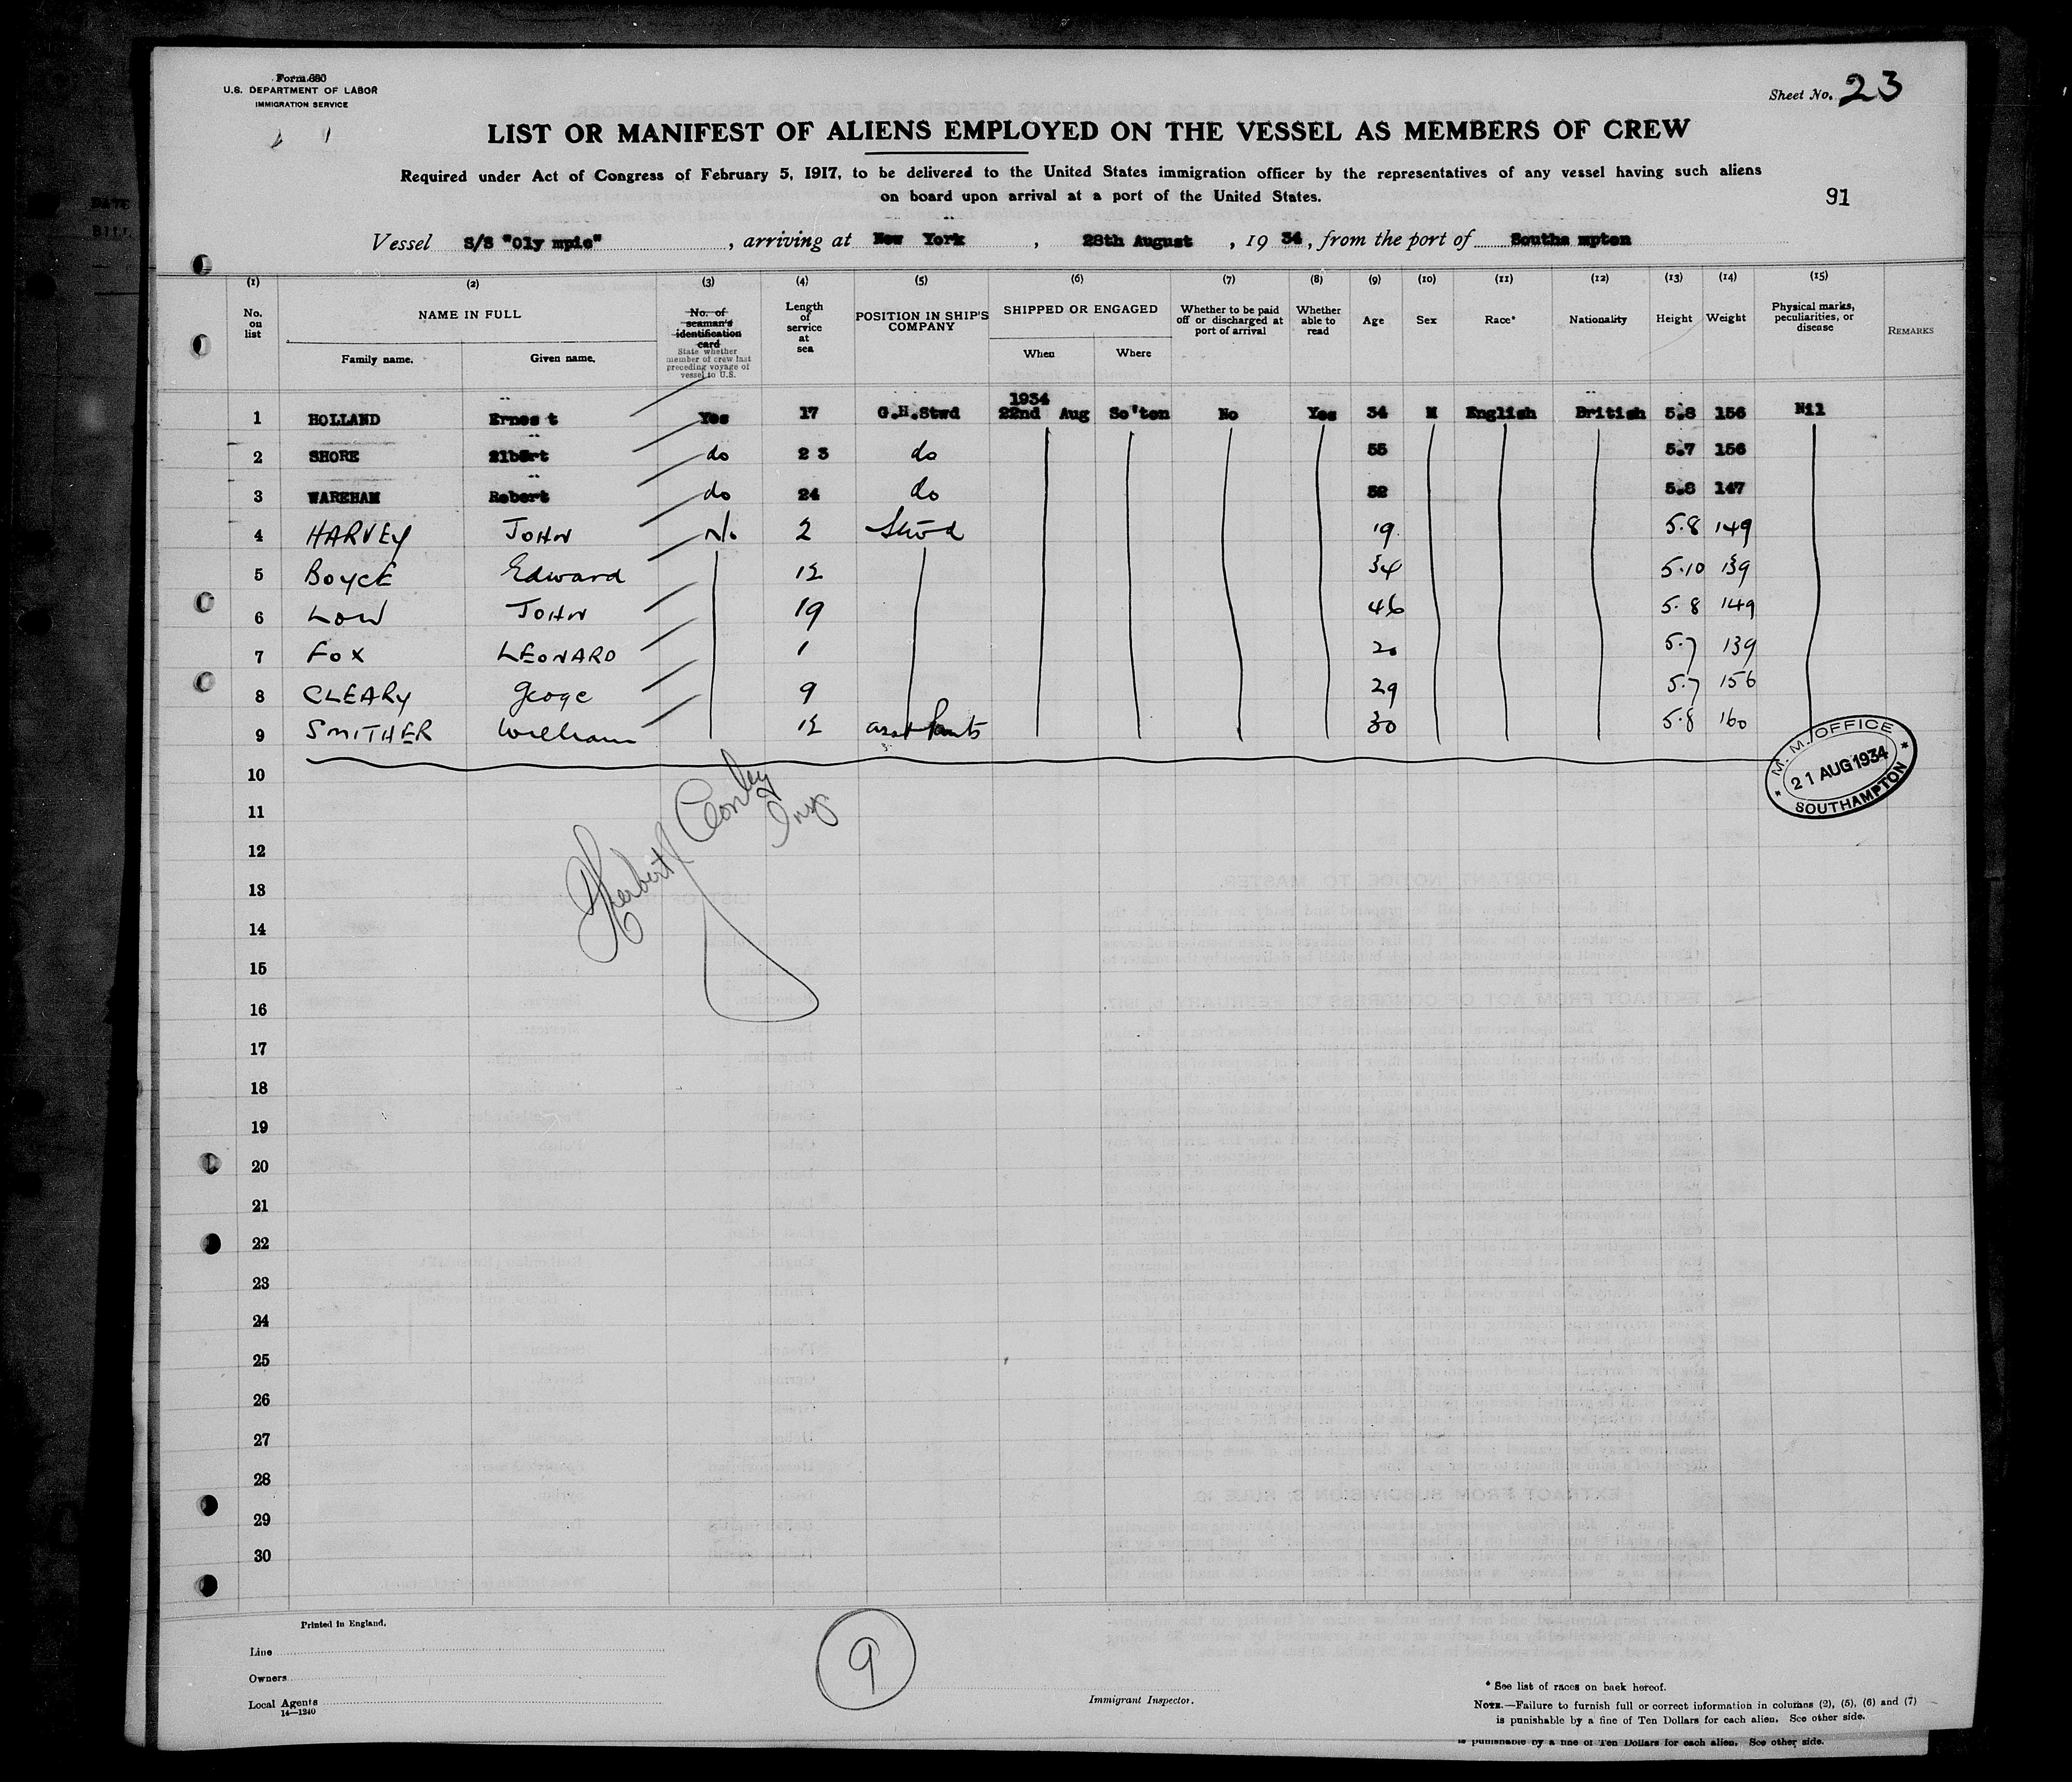 Form 680
U.S. DEPARTMENT OF LABOR
IMMIGRATION SERVICE
Sheet No. 23
LIST OR MANIFEST OF ALIENS EMPLOYED ON THE VESSEL AS MEMBERS OF CREW
Required under Act of Congress of February 5, 1917, to be delivered to the United States immigration officer by the representatives of any vessel having such aliens
on board upon arrival at a port of the United States.
91
Vessel S/S "Oly mpic", arriving at New York, 28th August, 19 34, from the port of Southa mpton
(1) (2) (3) (4) (5) (6) (7) (8) (9) (10) (11) (12) (13) (14) (15)
No. on list NAME IN FULL Family name. Given name. No. of seaman's identification card State whether member of crew last preceding voyage of vessel to U.S. Length of service at sea POSITION IN SHIP'S COMPANY SHIPPED OR ENGAGED When Where Whether to be paid off or discharged at port of arrival Whether able to read Age Sex Race* Nationality Height Weight Physical marks, peculiarities, or disease REMARKS
1934
1 HOLLAND Ernes t Yes 17 G.H.Stwd 22nd Aug So'ton No Yes 34 M English British 5.8 156 Nil
2 SHORE do 2 3 do 55 5.7 156
3 WAREHAM Robert do 24 do 52 5.8 147
4 HARVEY JOHN No 2 Stwd 19 5.8 149
5 BOYCE Edward 12 34 5.10 139
6 LOW JOHN 19 46 5.8 149
7 FOX LEONARD 1 20 5.7 139
8 CLEARY George 9 29 5.7 156
9 SMITHER William 12 asst 30 5.8 160
10
M. M. OFFICE
21 AUG 1934
SOUTHAMPTON
11
12
Herbert
13
14
15
16
17
18
19
20
21
22
23
24
25
26
27
28
29
30
Printed in England.
Line
Owners
Local Agents
14—1240
9
Immigrant Inspector.
* See list of races on back hereof.
NOTE.—Failure to furnish full or correct information in columns (2), (5), (6) and (7)
is punishable by a fine of Ten Dollars for each alien. See other side.
is punishable by a fine of Ten Dollars for each alien. See other side.